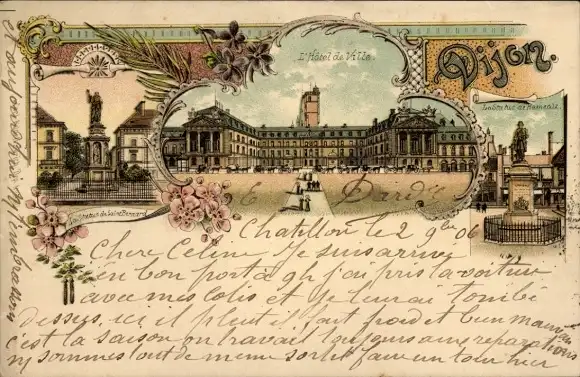 L'Hôtel de Ville.
Dijon.
La Statue de Rameau.
La Statue de Saint Bernard
Chatillon le 2 9bre 06
Chere Celine Je suis arrivé
en bon port à 9h j'ai pris la voiture
avec mes colis et je serai tombé
Dessus, ici il pleut il fait froid et bien mauvais
c'est la saison on travail toujours aux reparations
ny sommes tout de meme sortit faire un tour hier
et aujourd'hui